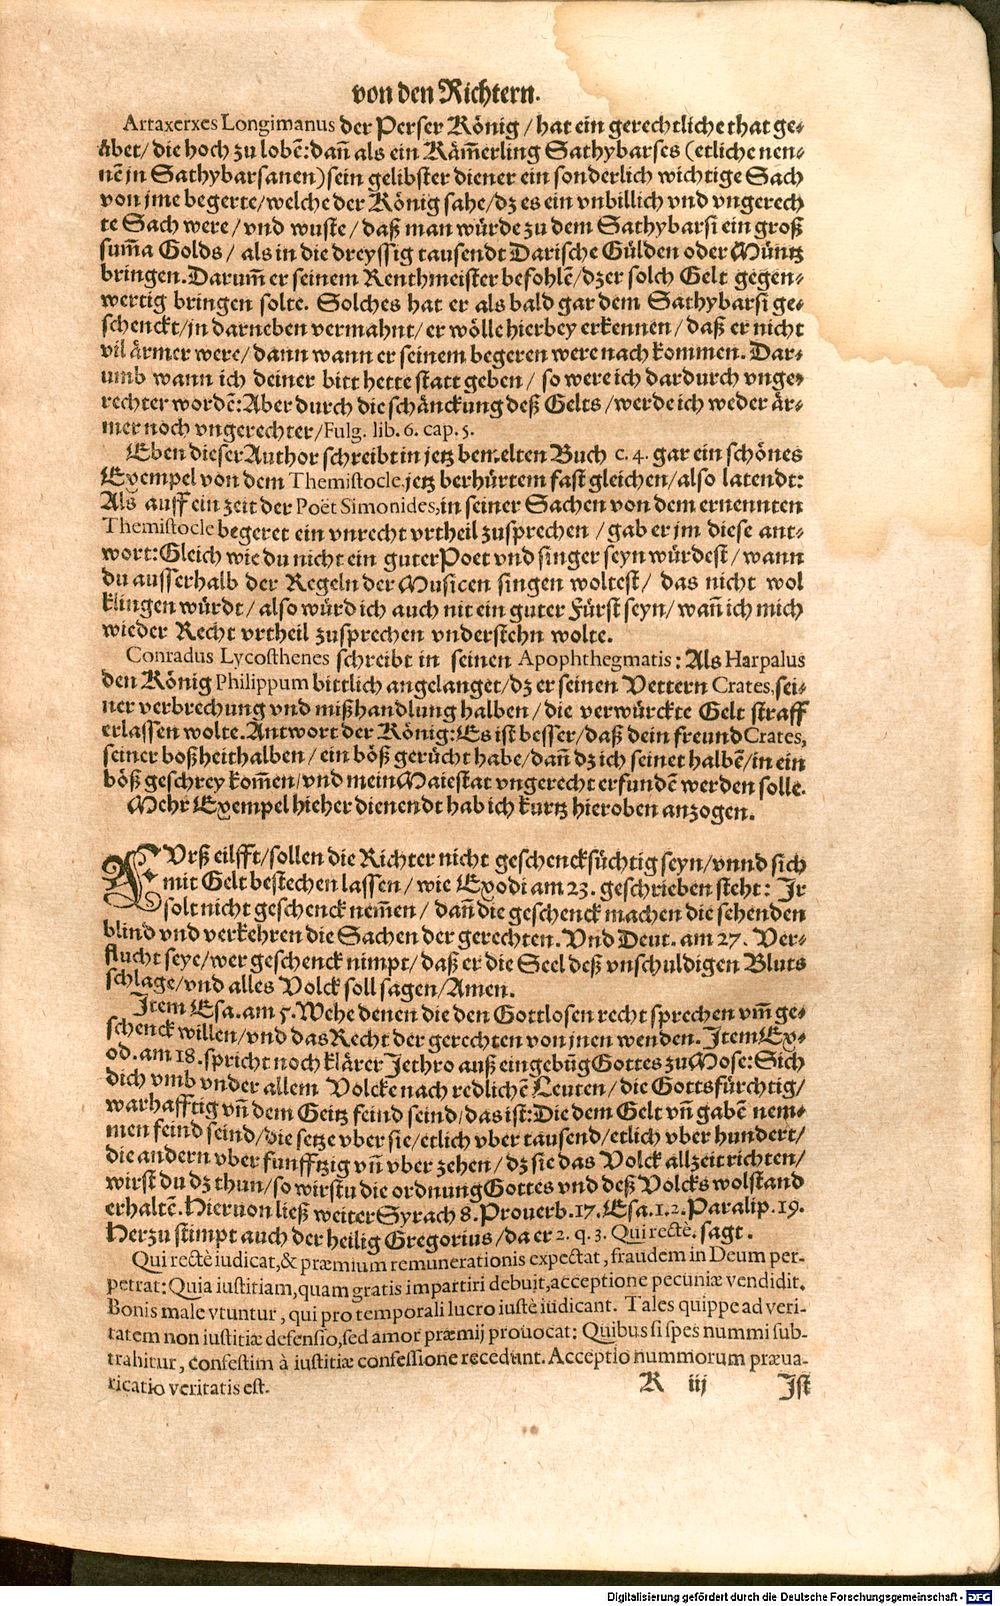 von den Richtern.
Artaxerxes Longimanus der Perser König / hat ein gerechtliche that ge-
übet / die hoch zu lobē: dañ als ein Käm̄erling Sathybarses (etliche nen-
nē jn Sathybarsanen) sein gelibster diener ein sonderlich wichtige Sach
von jme begerte / welche der König sahe / dz es ein vnbillich vnd vngerech
te Sach were / vnd wuste / daß man würde zu dem Sathybarsi ein groß
sum̄a Golds / als in die dreyssig tausendt Darische Gülden oder Müntz
bringen. Darum̄ er seinem Renthmeister befohlē / dz er solch Gelt gegen-
wertig bringen solte. Solches hat er als bald gar dem Sathybarsi ge-
schenckt / jn darneben vermahnt / er wölle hierbey erkennen / daß er nicht
vil ärmer were / dann wann er seinem begeren were nach kommen. Dar-
umb wann ich deiner bitt hette statt geben / so were ich dardurch vnge-
rechter wordē: Aber durch die schänckung deß Gelts / werde ich weder är-
mer noch vngerechter / Fulg. lib. 6. cap. 5.
Eben dieser Author schreibt in jetz bemelten Buch c. 4. gar ein schönes
Exempel von dem Themistocle, jetz berhürtem fast gleichen / also latendt:
Als auff ein zeit der Poët Simonides, in seiner Sachen von dem ernennten
Themistocle begeret ein vnrecht vrtheil zusprechen / gab er jm diese ant-
wort: Gleich wie du nicht ein guter Poet vnd singer seyn würdest / wann
du ausserhalb der Regeln der Musicen singen woltest / das nicht wol
klingen würdt / also würd ich auch nit ein guter Fürst seyn / wañ ich mich
wieder Recht vrtheil zusprechen vnderstehn wolte.
Conradus Lycosthenes schreibt in seinen Apophthegmatis: Als Harpalus
den König Philippum bittlich angelanget / dz er seinen Vettern Crates, sei-
ner verbrechung vnd mißhandlung halben / die verwürckte Gelt straff
erlassen wolte. Antwort der König: Es ist besser / daß dein freund Crates,
seiner boßheit halben / ein böß gerücht habe / dañ dz ich seinet halbē / in ein
böß geschrey kom̄en / vnd mein Maiestat vngerecht erfundē werden solle.
Mehr Exempel hieher dienendt hab ich kurtz hieroben anzogen.
FVrß eilfft / sollen die Richter nicht geschencksüchtig seyn / vnnd sich
mit Gelt bestechen lassen / wie Exodi am 23. geschrieben steht: Jr
solt nicht geschenck nem̄en / dañ die geschenck machen die sehenden
blind vnd verkehren die Sachen der gerechten. Vnd Deut. am 27. Ver-
flucht seye / wer geschenck nimpt / daß er die Seel deß vnschuldigen Bluts
schlage / vnd alles Volck soll sagen / Amen.
Jtem Esa. am 5. Wehe denen die den Gottlosen recht sprechen vm̄ ge-
schenck willen / vnd das Recht der gerechten von jnen wenden. Jtem Ex-
od. am 18. spricht noch klärer Jethro auß eingebūg Gottes zu Mose: Sich
dich vmb vnder allem Volcke nach redlichē Leuten / die Gottsfürchtig /
warhafftig vñ dem Geitz feind seind / das ist: Die dem Gelt vñ gabē nem-
men feind seind / die setze vber sie / etlich vber tausend / etlich vber hundert /
die andern vber funfftzig vñ vber zehen / dz sie das Volck allzeit richten /
wirst du dz thun / so wirstu die ordnung Gottes vnd deß Volcks wolstand
erhaltē. Hieruon ließ weiter Syrach 8. Prouerb. 17. Esa. 1. 2. Paralip. 19.
Herzu stimpt auch der heilig Gregorius / da er 2. q. 3. Qui rectè. sagt.
Qui rectè iudicat, & præmium remunerationis expectat, fraudem in Deum per-
petrat: Quia iustitiam, quam gratis impartiri debuit, acceptione pecuniæ vendidit.
Bonis male vtuntur, qui pro temporali lucro iustè iudicant. Tales quippe ad veri-
tatem non iustitiæ defensio, sed amor præmij prouocat: Quibus si spes nummi sub-
trahitur, confestim à iustitiæ confessione recedunt. Acceptio nummorum præua-
ricatio veritatis est.
R iij Jst
Digitalisierung gefördert durch die Deutsche Forschungsgemeinschaft - DFG